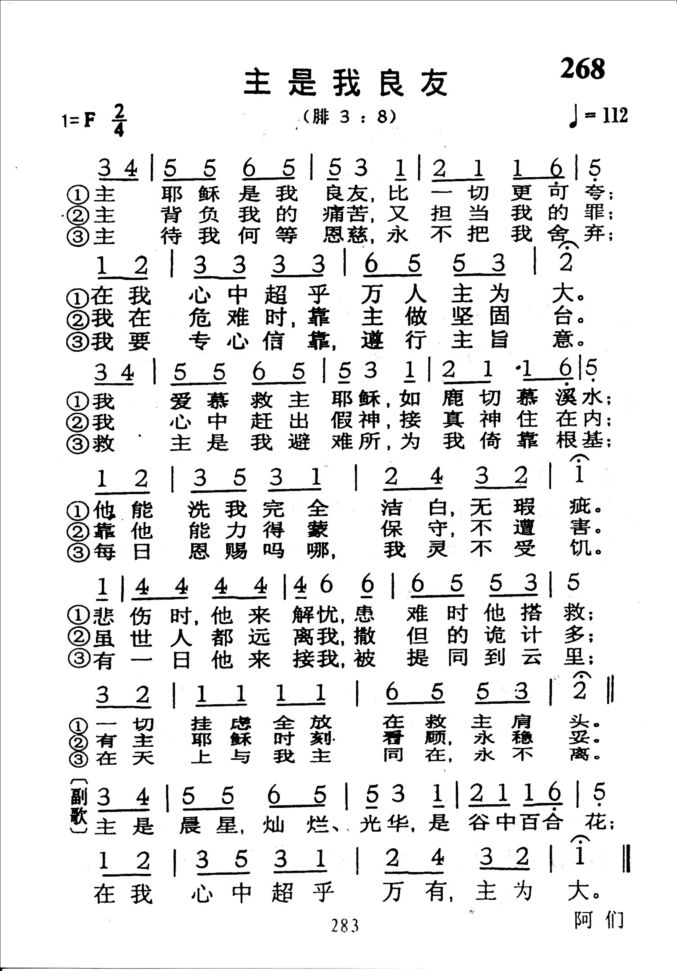 268
主是我良友
1=F 2/4
（腓3：8）
♩=112
3 4 | 5 5 6 5 | 5 3 1 | 2 1 1 6 | 5
①主 耶稣是我 良友,比 一切更可夸;
②主 背负我的 痛苦,又 担当我的罪;
③主 待我何等 恩慈,永 不把我舍弃;
1 2 | 3 3 3 3 | 6 5 5 3 | 2
①在我 心中超乎 万人主为 大。
②我在 危难时,靠 主做坚固 台。
③我要 专心信靠,遵行主旨 意。
3 4 | 5 5 6 5 | 5 3 1 | 2 1 · 1 6 | 5
①我 爱慕救主 耶稣,如 鹿切慕溪水;
②我 心中赶出 假神,接 真神住在内;
③救 主是我避 难所,为 我倚靠根基;
1 2 | 3 5 3 1 | 2 4 3 2 | 1
①他能 洗我完全 洁白,无瑕 疵。
②靠他 能力得蒙 保守,不遭 害。
③每日 恩赐吗哪, 我灵不受 饥。
1 | 4 4 4 4 | 4 6 6 | 6 5 5 3 | 5
①悲伤时,他来解忧,患 难时他搭救;
②虽世人都远离我,撒 但的诡计多;
③有一日他来接我,被 提同到云里;
3 2 | 1 1 1 1 | 6 5 5 3 | 2 ‖
①一切 挂虑全放 在救主肩 头。
②有主 耶稣时刻 看顾,永稳 妥。
③在天 上与我主 同在,永不 离。
〔副歌〕
3 4 | 5 5 6 5 | 5 3 1 | 2 1 1 6 | 5
主是 晨星,灿烂、光华,是 谷中百合 花;
1 2 | 3 5 3 1 | 2 4 3 2 | 1 ‖
在我 心中超乎 万有,主为 大。
阿们
283